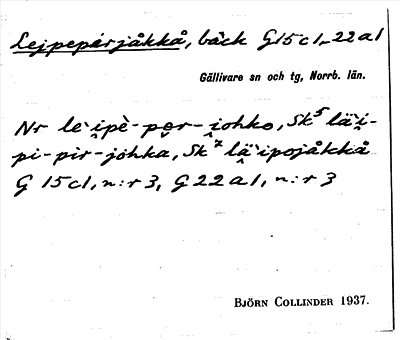 Lejpepárjåkkå, bäck G15c1, 22a1
Gällivare sn och tg, Norrb. län.
Nr le`i̯pè-per-i̯ohko, Sk⁵ lä`i̯-
pi-pir-jóhka, Sk² lä`ipojåkkå
G 15c1, n:r 3, G 22a1, n:r 3
BJÖRN COLLINDER 1937.